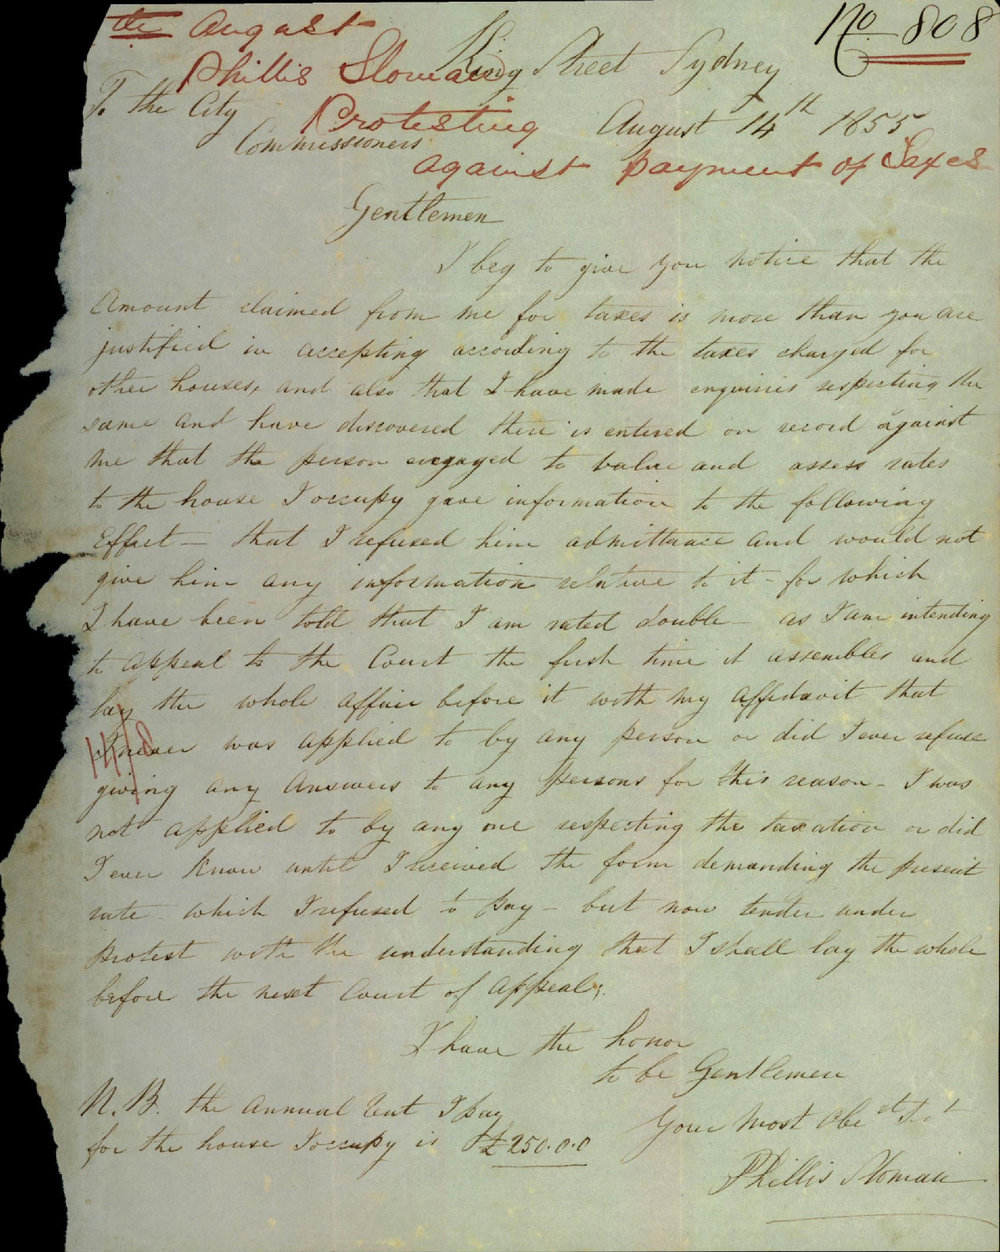 No 808
August
Phillis Sloman
King Street Sydney
To the City
Commissioners
Protesting
August 14th 1855
against payment of Taxes
Gentlemen
I beg to give you notice that the
Amount claimed from me for taxes is more than you are
justified in accepting according to the taxes charged for
other houses, and also that I have made enquiries respecting the
same and have discovered there is entered on record against
me that the person engaged to value and assess rates
to the house I occupy gave information to the following
Effect — that I refused him admittance and would not
give him any information relative to it - for which
I have been told that I am rated double — as I am intending
to appeal to the Court the first time it assembles and
lay the whole affair before it with my affidavit that
I never was applied to by any person or did I ever refuse
14/8
giving any Answers to any persons for this reason - I was
not applied to by any one respecting the taxation or did
I ever know until I received the form demanding the present
rate which I refused to pay - but now tender under
protest with the understanding that I shall lay the whole
before the next Court of Appeal,
I have the honor
to be Gentlemen
Your most Obet St
Phillis Sloman
N.B. the Annual Rent I pay
for the house I occupy is £250.0.0